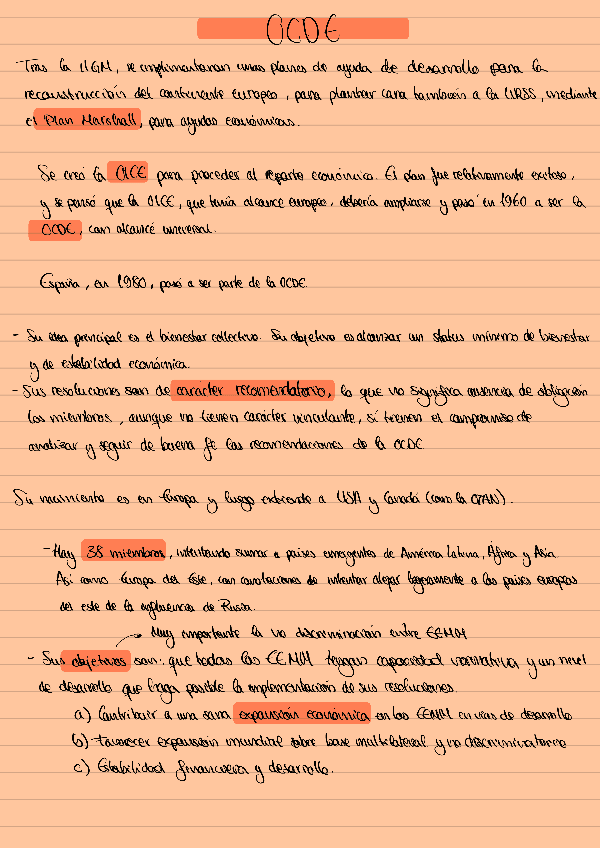 OCDE
- Tras la IIGM, se implementaron unos planes de ayuda de desarrollo para la
reconstrucción del continente europeo, para plantar cara también a la URSS, mediante
el Plan Marshall, para ayudas económicas.
Se creó la OECE para proceder al reparto económico. El plan fue relativamente exitoso,
y se pensó que la OECE, que tenía alcance europeo, debería ampliarse y pasó en 1960 a ser la
OCDE, con alcance universal.
España, en 1980, pasó a ser parte de la OCDE.
- Su idea principal es el bienestar collectivo. Su objetivo es alcanzar un status mínimo de bienestar
y de estabilidad económica.
- Sus resoluciones son de carácter recomendatorio, lo que no significa ausencia de obligación
los miembros, aunque no tienen carácter vinculante, sí tienen el compromiso de
analizar y seguir de buena fe las recomendaciones de la OCDE.
Su nacimiento es en Europa y luego extiende a USA y Canadá (como la OTAN).
- Hay 38 miembros, intentando sumar a países emergentes de América Latina, África y Asia.
Así como Europa del Este, con connotaciones de intentar alejar ligeramente a los países europeos
del este de la influencia de Rusia.
Muy importante la no discriminación entre EEMM
- Sus objetivos son: que todos los EEMM tengan capacidad normativa y un nivel
de desarrollo que haga posible la implementación de sus resoluciones.
a) Contribuir a una sana expansión económica en los EEMM en vías de desarrollo
b) Favorecer expansión mundial sobre base multilateral y no discriminatoria
c) Estabilidad financiera y desarrollo.